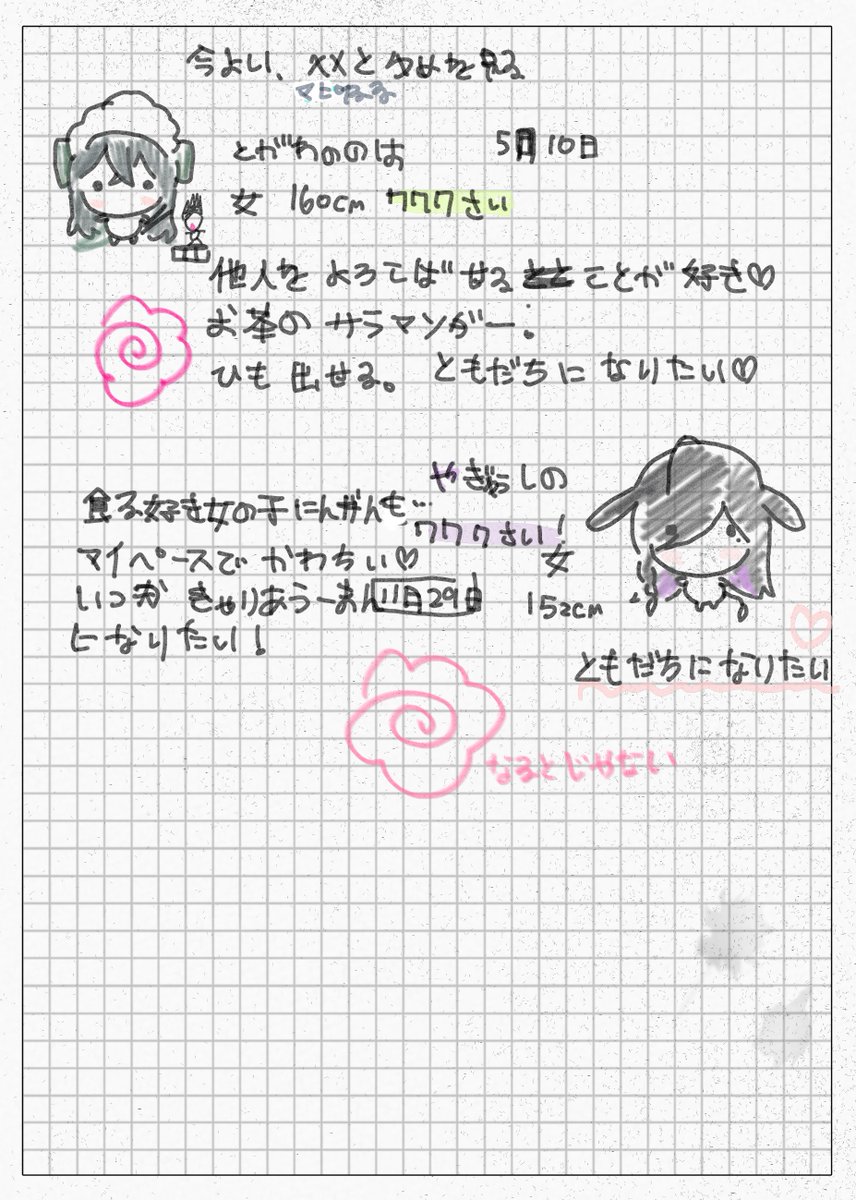 今よい、××と夕めを見る
とがわののは 5月10日
女 160cm ワクワクさい
他人を よろこばせる ことが 好き♡
お茶の サラマンダー。
ひも 出せる。 ともだちに なりたい♡
やぎうしの
食る好き女の子にんげんも…
ワクワクさい!
マイペースで かわちい♡
女
いつか きゃりあうーまん 11月29日
152cm
になりたい!
ともだちになりたい
なるとじゃない